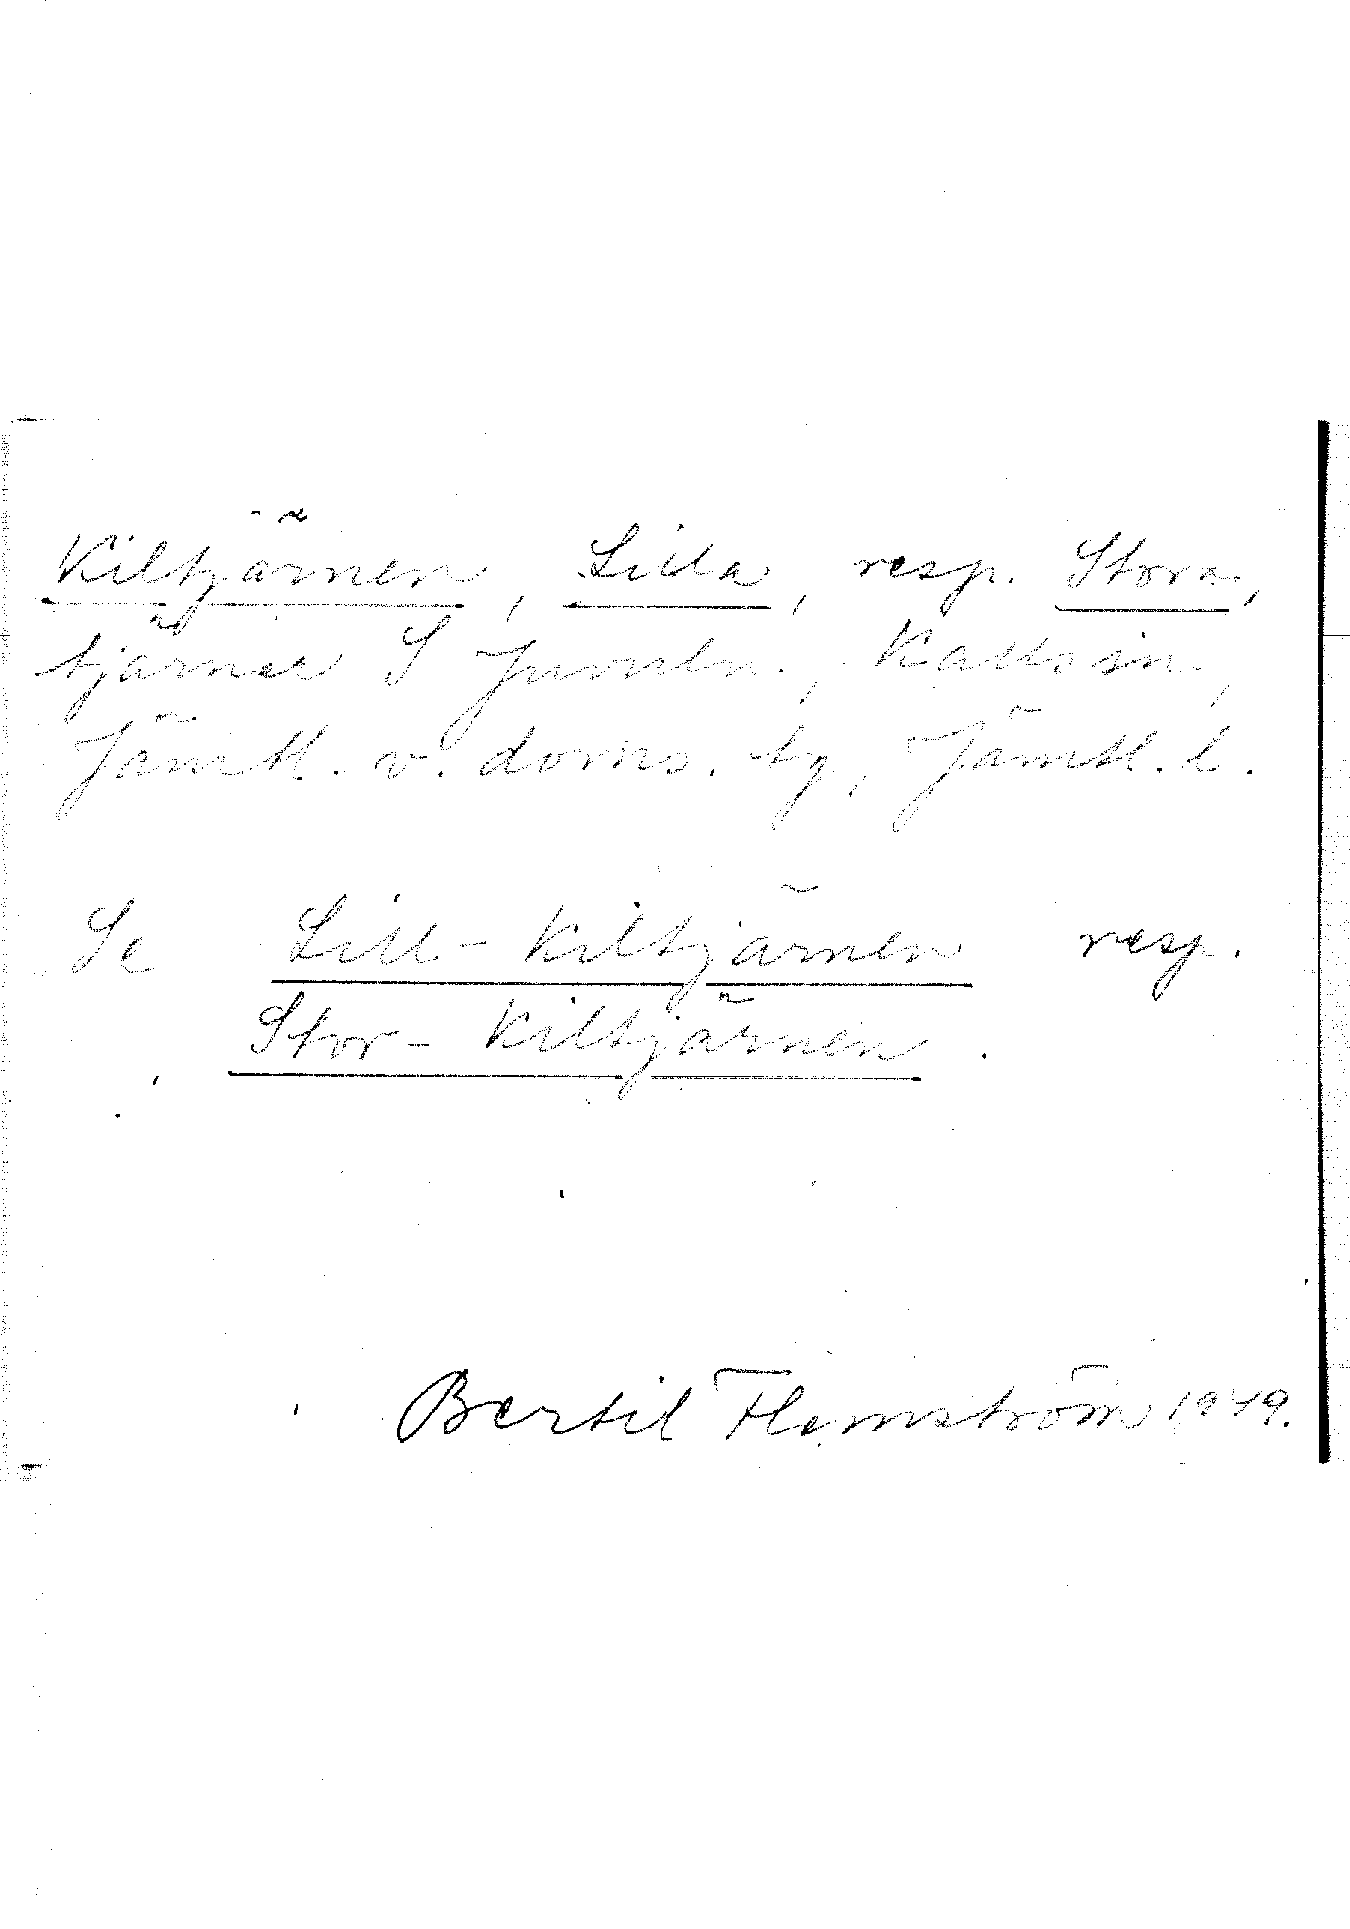 Kiltjärnen, Lilla, resp. Stora,
tjärnar S Juveln., Kallsn.,
Jämtl. v. doms. tg, Jämtl. l.
Se Lill-Kiltjärnen resp.
Stor-Kiltjärnen.
Bertil Flemström 1949.